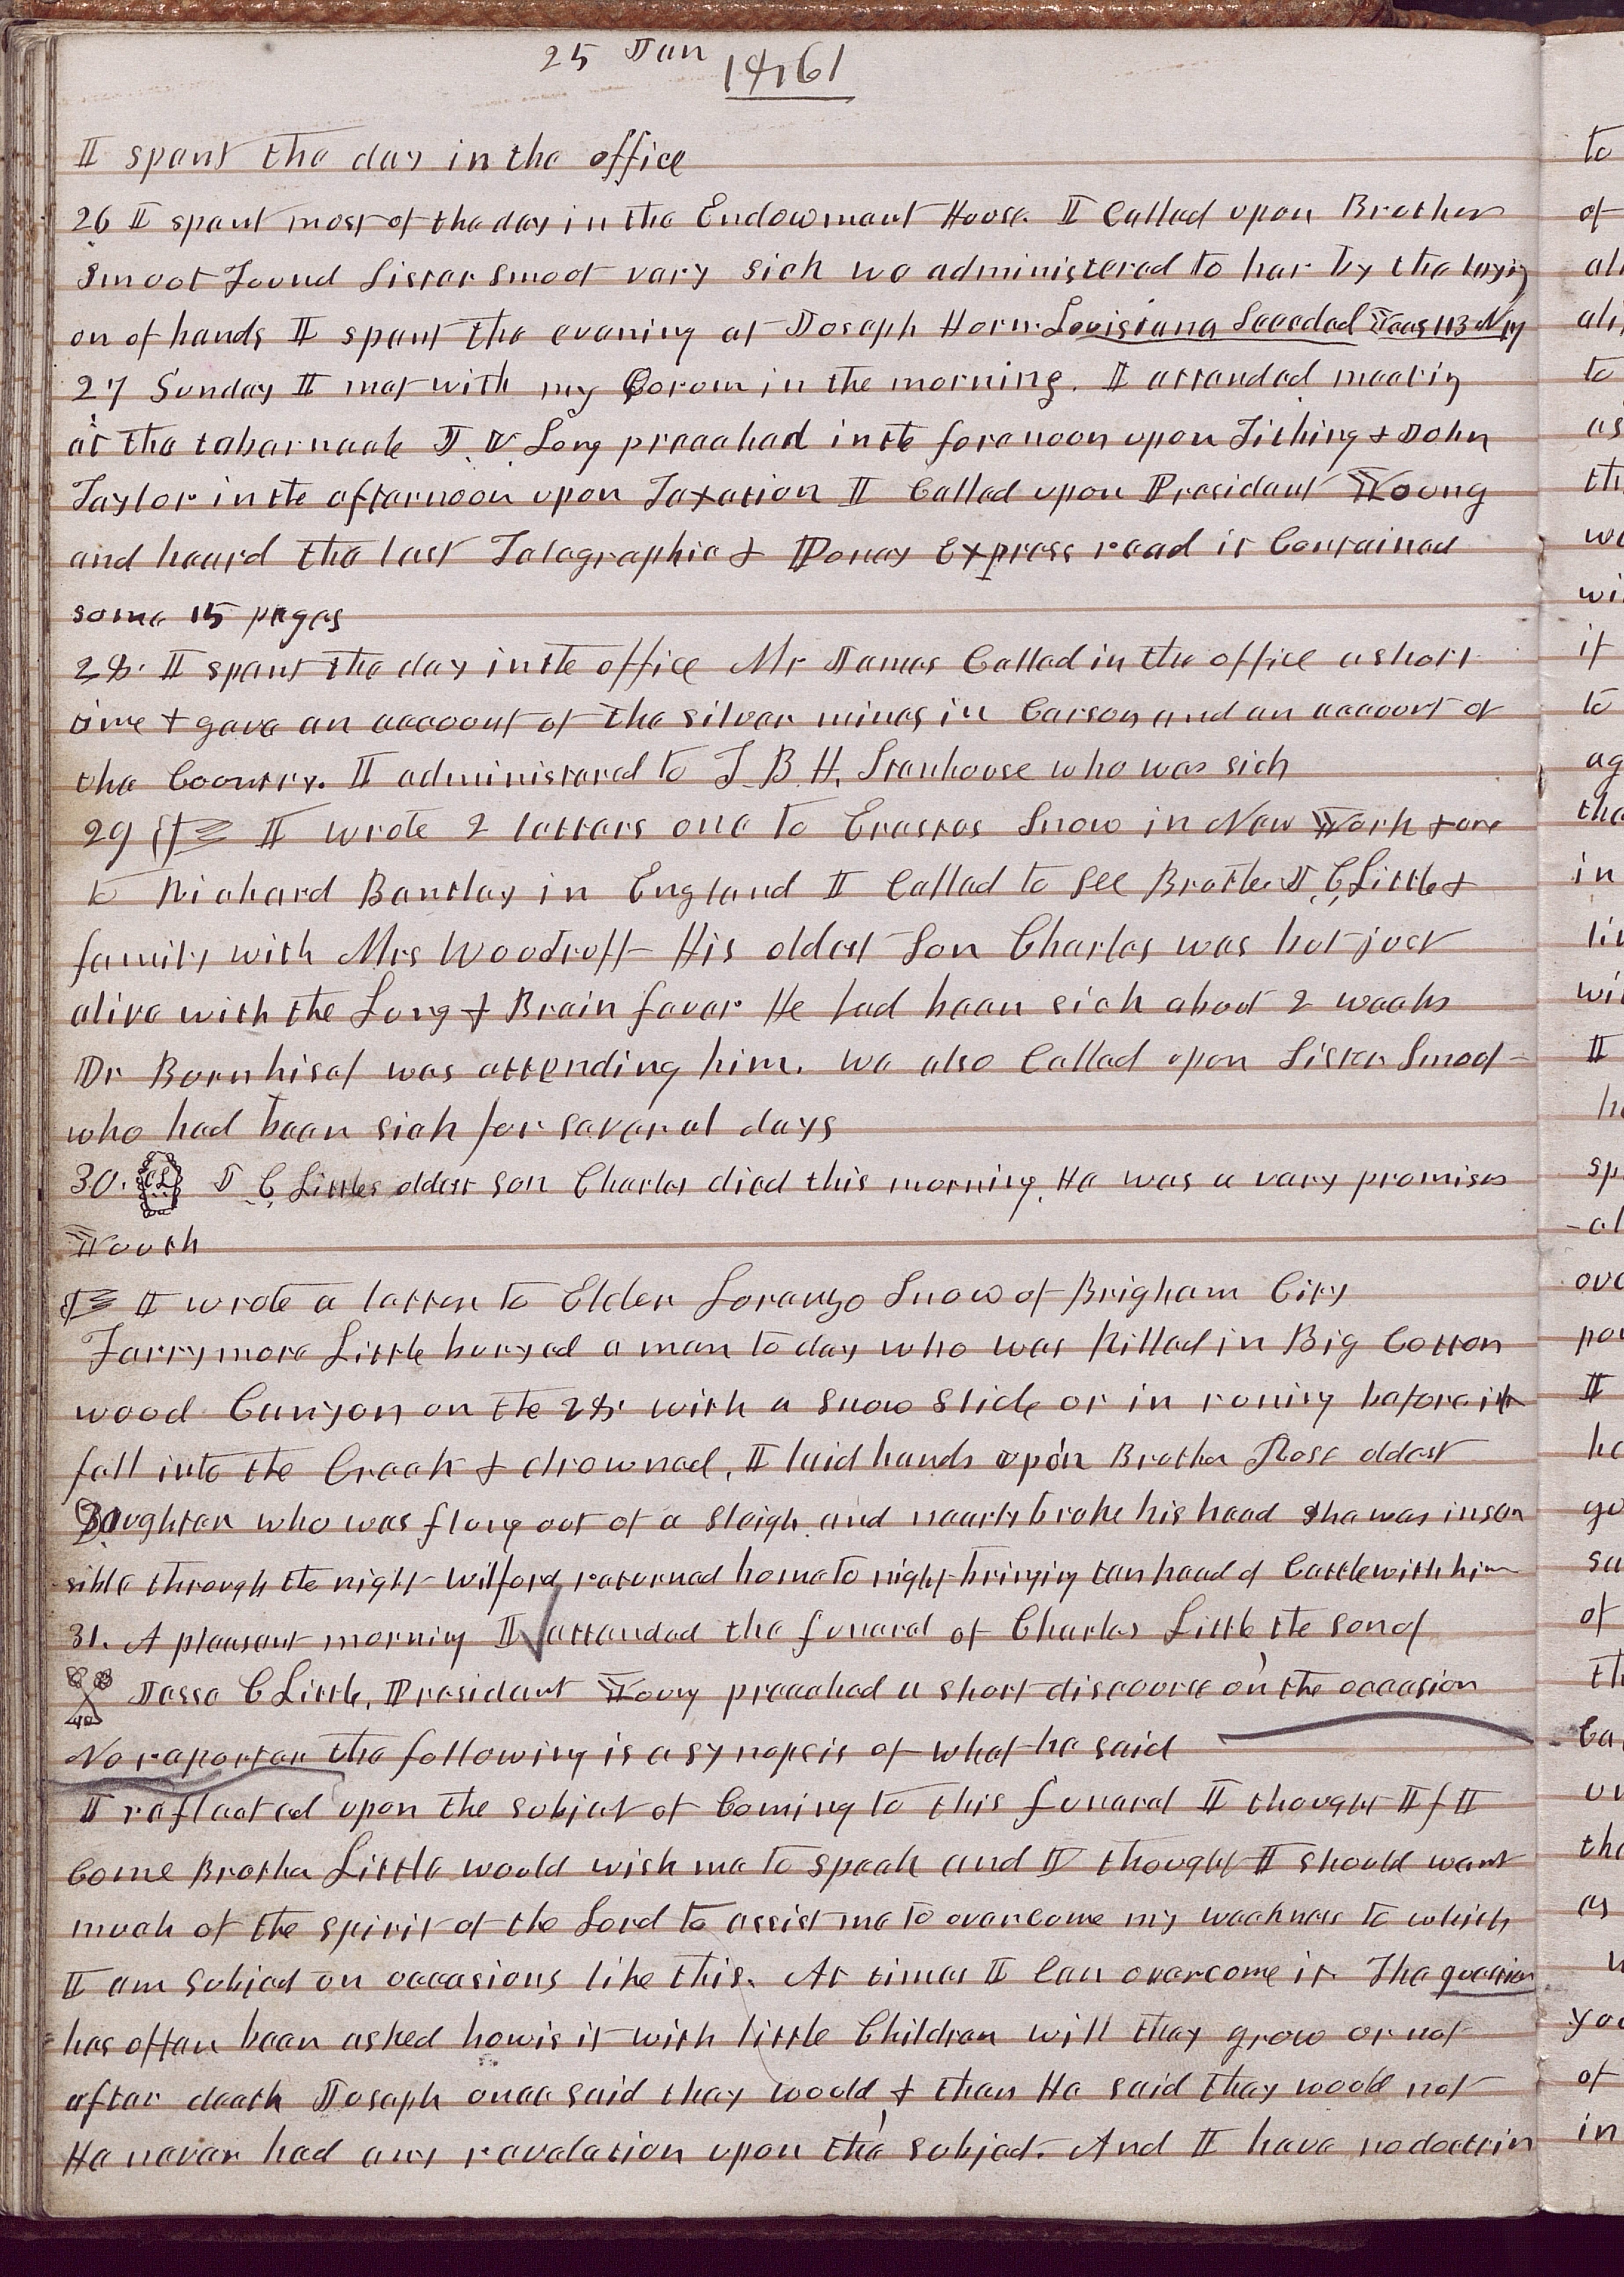 25 Jan 1861
I spent the day in the office
26 I spent most of the day in the Endowment House. I Called upon Brother
Smoot Found Sister Smoot very sick we administered to her by the laying
on of hands I spent the evening at Joseph Horn. Louisiana Seceded Yeas 113 N 17
27 Sunday I met with my Qorum in the morning. I attended meetig
at the tabernacle J. V. Long preached in the forenoon upon Tithing & John
Taylor in the afternoon upon Taxation I Called upon President Young
and heard the last Telegraphic & Poney Express read it Contained
some 15 pages
28. I spent the day in the office Mr James Called in the office a short
time & gave an account of the silver mines in Carson and an account of
the Country. I administered to T. B. H. Stenhouse who was sick
29 I wrote 2 letters one to Erastus Snow in New York & one
to Richard Bentley in England I Called to see Brother J. C. Little &
family with Mrs Woodruff His oldest Son Charles was but just
alive with the Lung & Brain fever He had been sick about 2 weeks
Dr Bernhisel was attending him. we also Called upon Sister Smoot
who had been sick for several days
30. CL J C, Littles oldest son Charles died this morning. He was a very promises
Youth
I wrote a letter to Elder Lorenzo Snow of Brigham City
Farrymore Little buryed a man to day who was killed in Big Cotton
wood Canyon on the 28. with a snow slide or in runing before it
fell into the Creek & drowned, I laid hands upon Brother Rose oldest
Daughter who was flung out of a sleigh and nearly broke his head she was insen
sible through the night Wilford returned home to night bringig ten head of Cattle with him
31. A pleasant morning I attended the funeral of Charles Little the son of
Jesse C Little, President Young preached a short discource on the occasion
No reporter the following is a synopsis of what he said
I reflected upon the subject of Coming to this funeral I thought If I
Come Brother Little would wish me to speak and I thought I should want
much of the spirit of the Lord to assist me to overcome my weakness to which
I am subject on occasions like this. At times I Can overcome it The question
has often been asked how is it with little Children will they grow or not
after death Joseph once said they would & then He said they would not
He never had any revelation upon the subject. And I have no doctrin